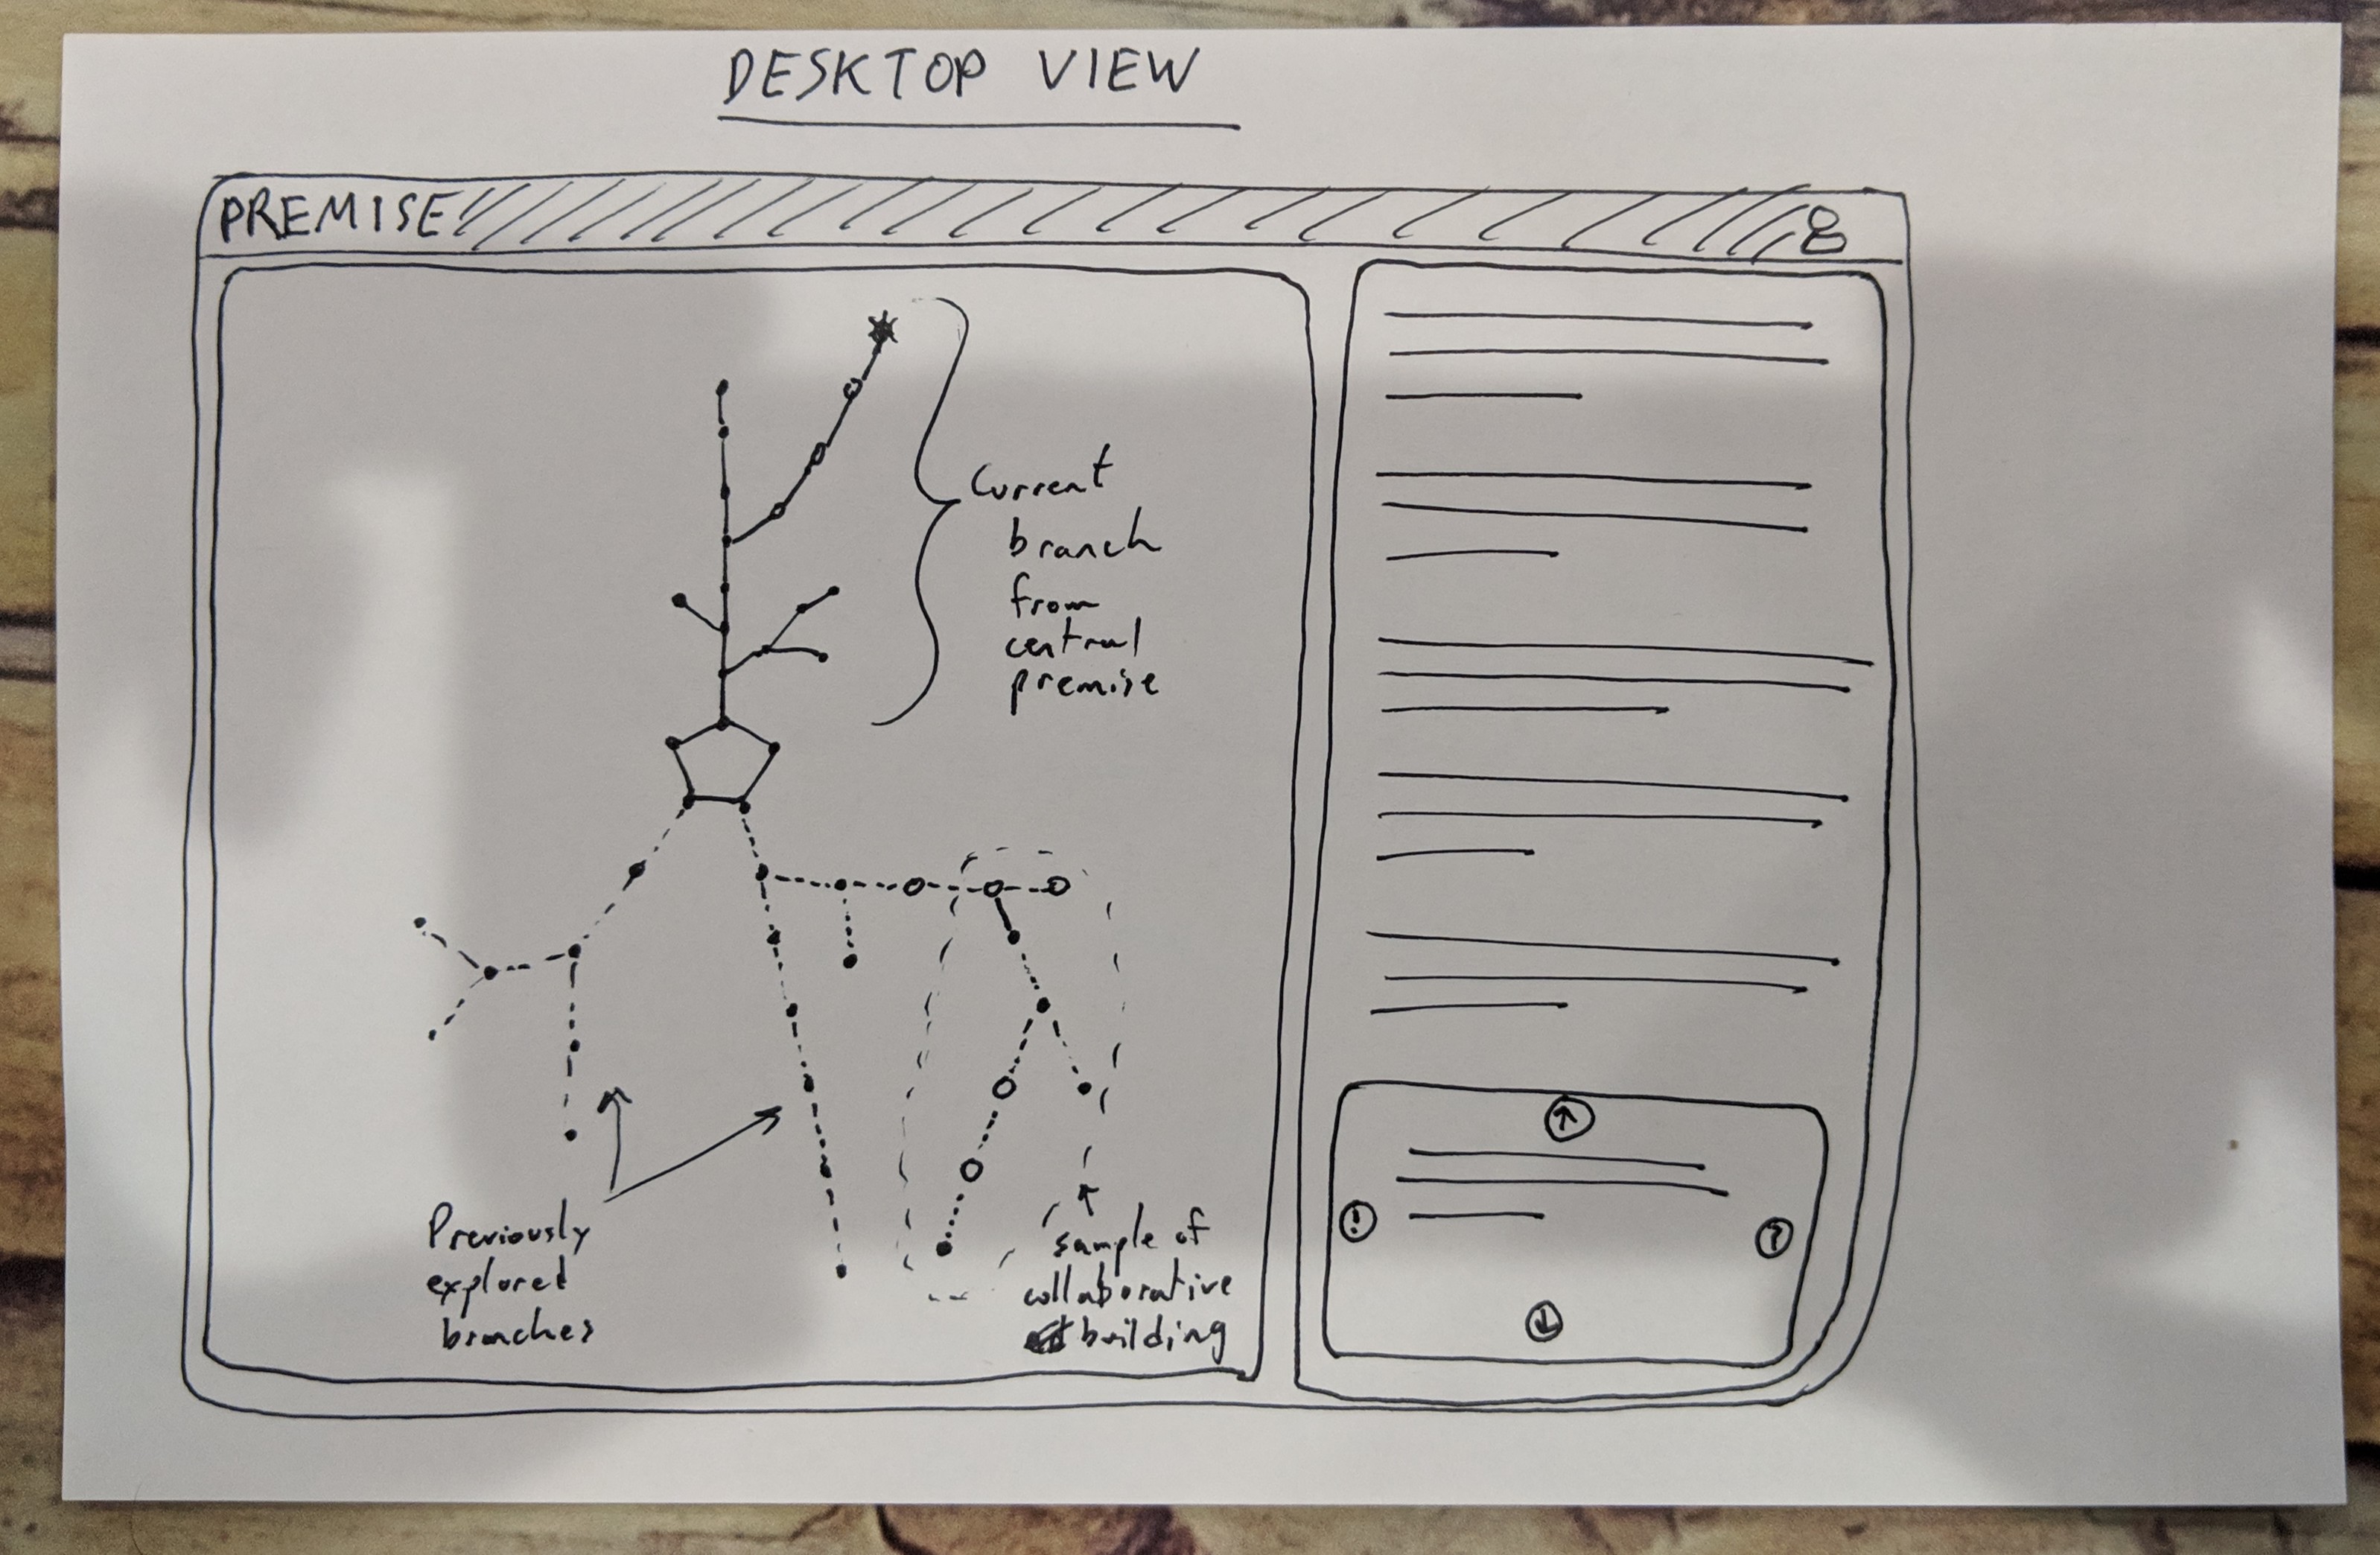 DESKTOP VIEW
PREMISE
Current
branch
from
central
premise
Previously
explored
branches
sample of
collaborative
building
!
?